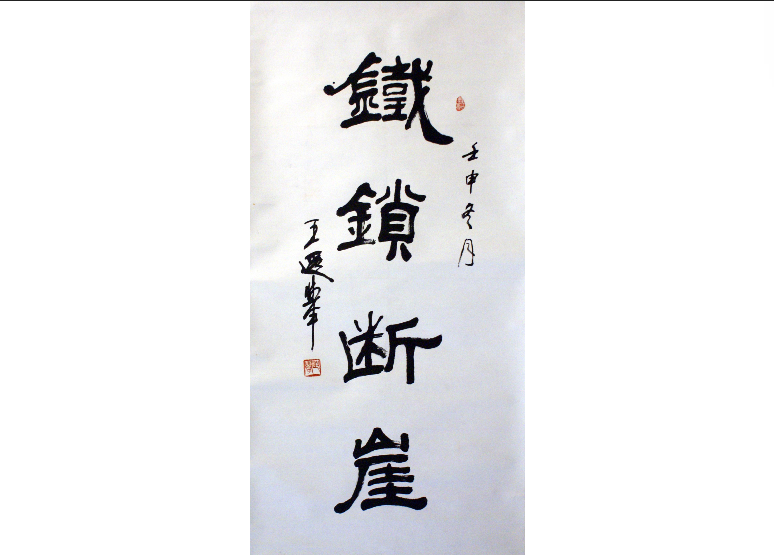 壬申冬月
鐵鎖断崖
王遐舉